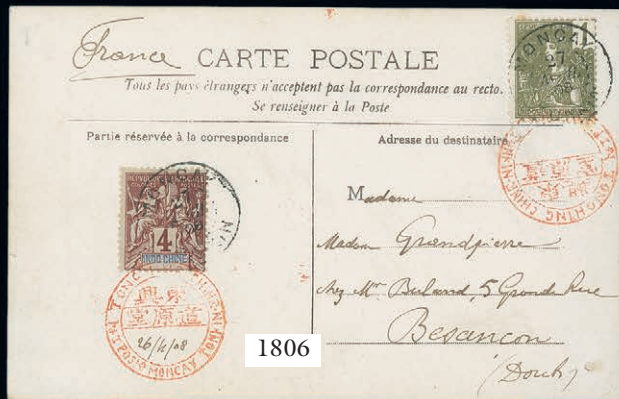 France CARTE POSTALE
Tous les pays étrangers n'acceptent pas la correspondance au recto.
Se renseigner à la Poste
Partie réservée à la correspondance
Adresse du destinataire
Madame
Madame Grandpierre
chez Mr Burland, 5 Grande Rue
Besançon
(Doubs)
MONCAY
27
08
4
INDO-CHINE
東興
堂源道
TONGHING CHINE
MONCAY
26/4/08
1806